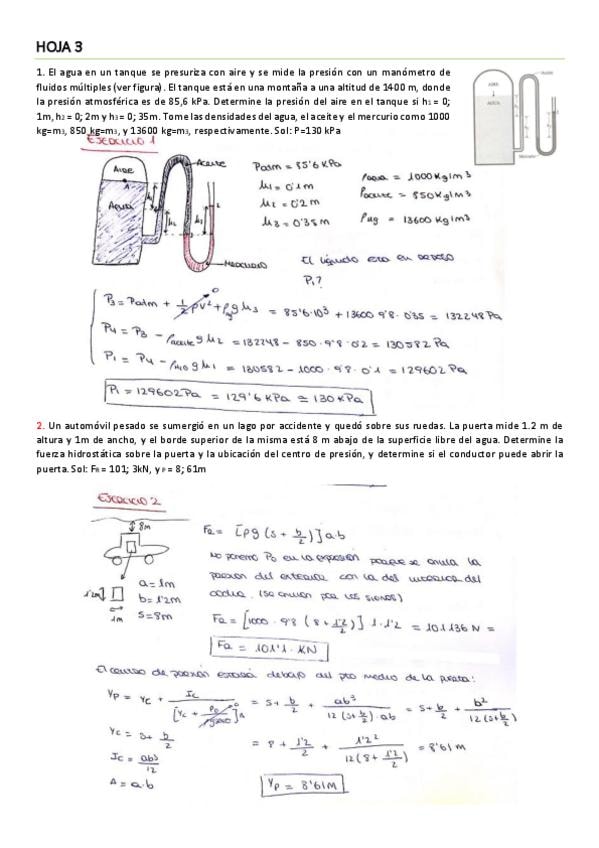 HOJA 3
1. El agua en un tanque se presuriza con aire y se mide la presión con un manómetro de
fluidos múltiples (ver figura). El tanque está en una montaña a una altitud de 1400 m, donde
la presión atmosférica es de 85,6 kPa. Determine la presión del aire en el tanque si h1 = 0;
1m, h2 = 0; 2m y h3 = 0; 35m. Tome las densidades del agua, el aceite y el mercurio como 1000
kg=m3, 850 kg=m3, y 13600 kg=m3, respectivamente. Sol: P=130 kPa
AIRE
AGUA
EJERCICIO 1
Aire
Agua
Aceite
Mercurio
h1
h2
h3
Patm = 85'6 KPa
h1 = 0'1m
h2 = 0'2m
h3 = 0'35m
ρagua = 1000 Kg/m3
ρaceite = 850 Kg/m3
ρHg = 13600 Kg/m3
El líquido está en reposo
P1?
P3 = Patm + 1/2 ρv² + ρHg g h3 = 85'6·10³ + 13600·9'8·0'35 = 132248 Pa
P4 = P3 - ρaceite g h2 = 132248 - 850·9'8·0'2 = 130582 Pa
P1 = P4 - ρH2O g h1 = 130582 - 1000·9'8·0'1 = 129602 Pa
P1 = 129602 Pa = 129'6 KPa ≅ 130 KPa
2. Un automóvil pesado se sumergió en un lago por accidente y quedó sobre sus ruedas. La puerta mide 1.2 m de
altura y 1m de ancho, y el borde superior de la misma está 8 m abajo de la superficie libre del agua. Determine la
fuerza hidrostática sobre la puerta y la ubicación del centro de presión, y determine si el conductor puede abrir la
puerta. Sol: FR = 101; 3kN, yP = 8; 61m
EJERCICIO 2
8m
1'2m
1m
a = 1m
b = 1'2m
s = 8m
FR = [ρg (s + b/2)] a·b
No ponemos P0 en la expresión porque se anula la
presión del exterior con la del interior del
coche. (se anulan por los signos)
FR = [1000·9'8 (8 + 1'2/2)] 1·1'2 = 101136 N =
FR = 101'1 KN
El centro de presión estará debajo del pto medio de la puerta:
yP = yC + IC / [yC + P0/ρg senθ] A = s + b/2 + ab³/12(s + b/2)·ab = s + b/2 + b²/12(s + b/2)
yC = s + b/2
= 8 + 1'2/2 + 1'2²/12(8 + 1'2/2) = 8'61 m
IC = ab³/12
A = a·b
yP = 8'61M